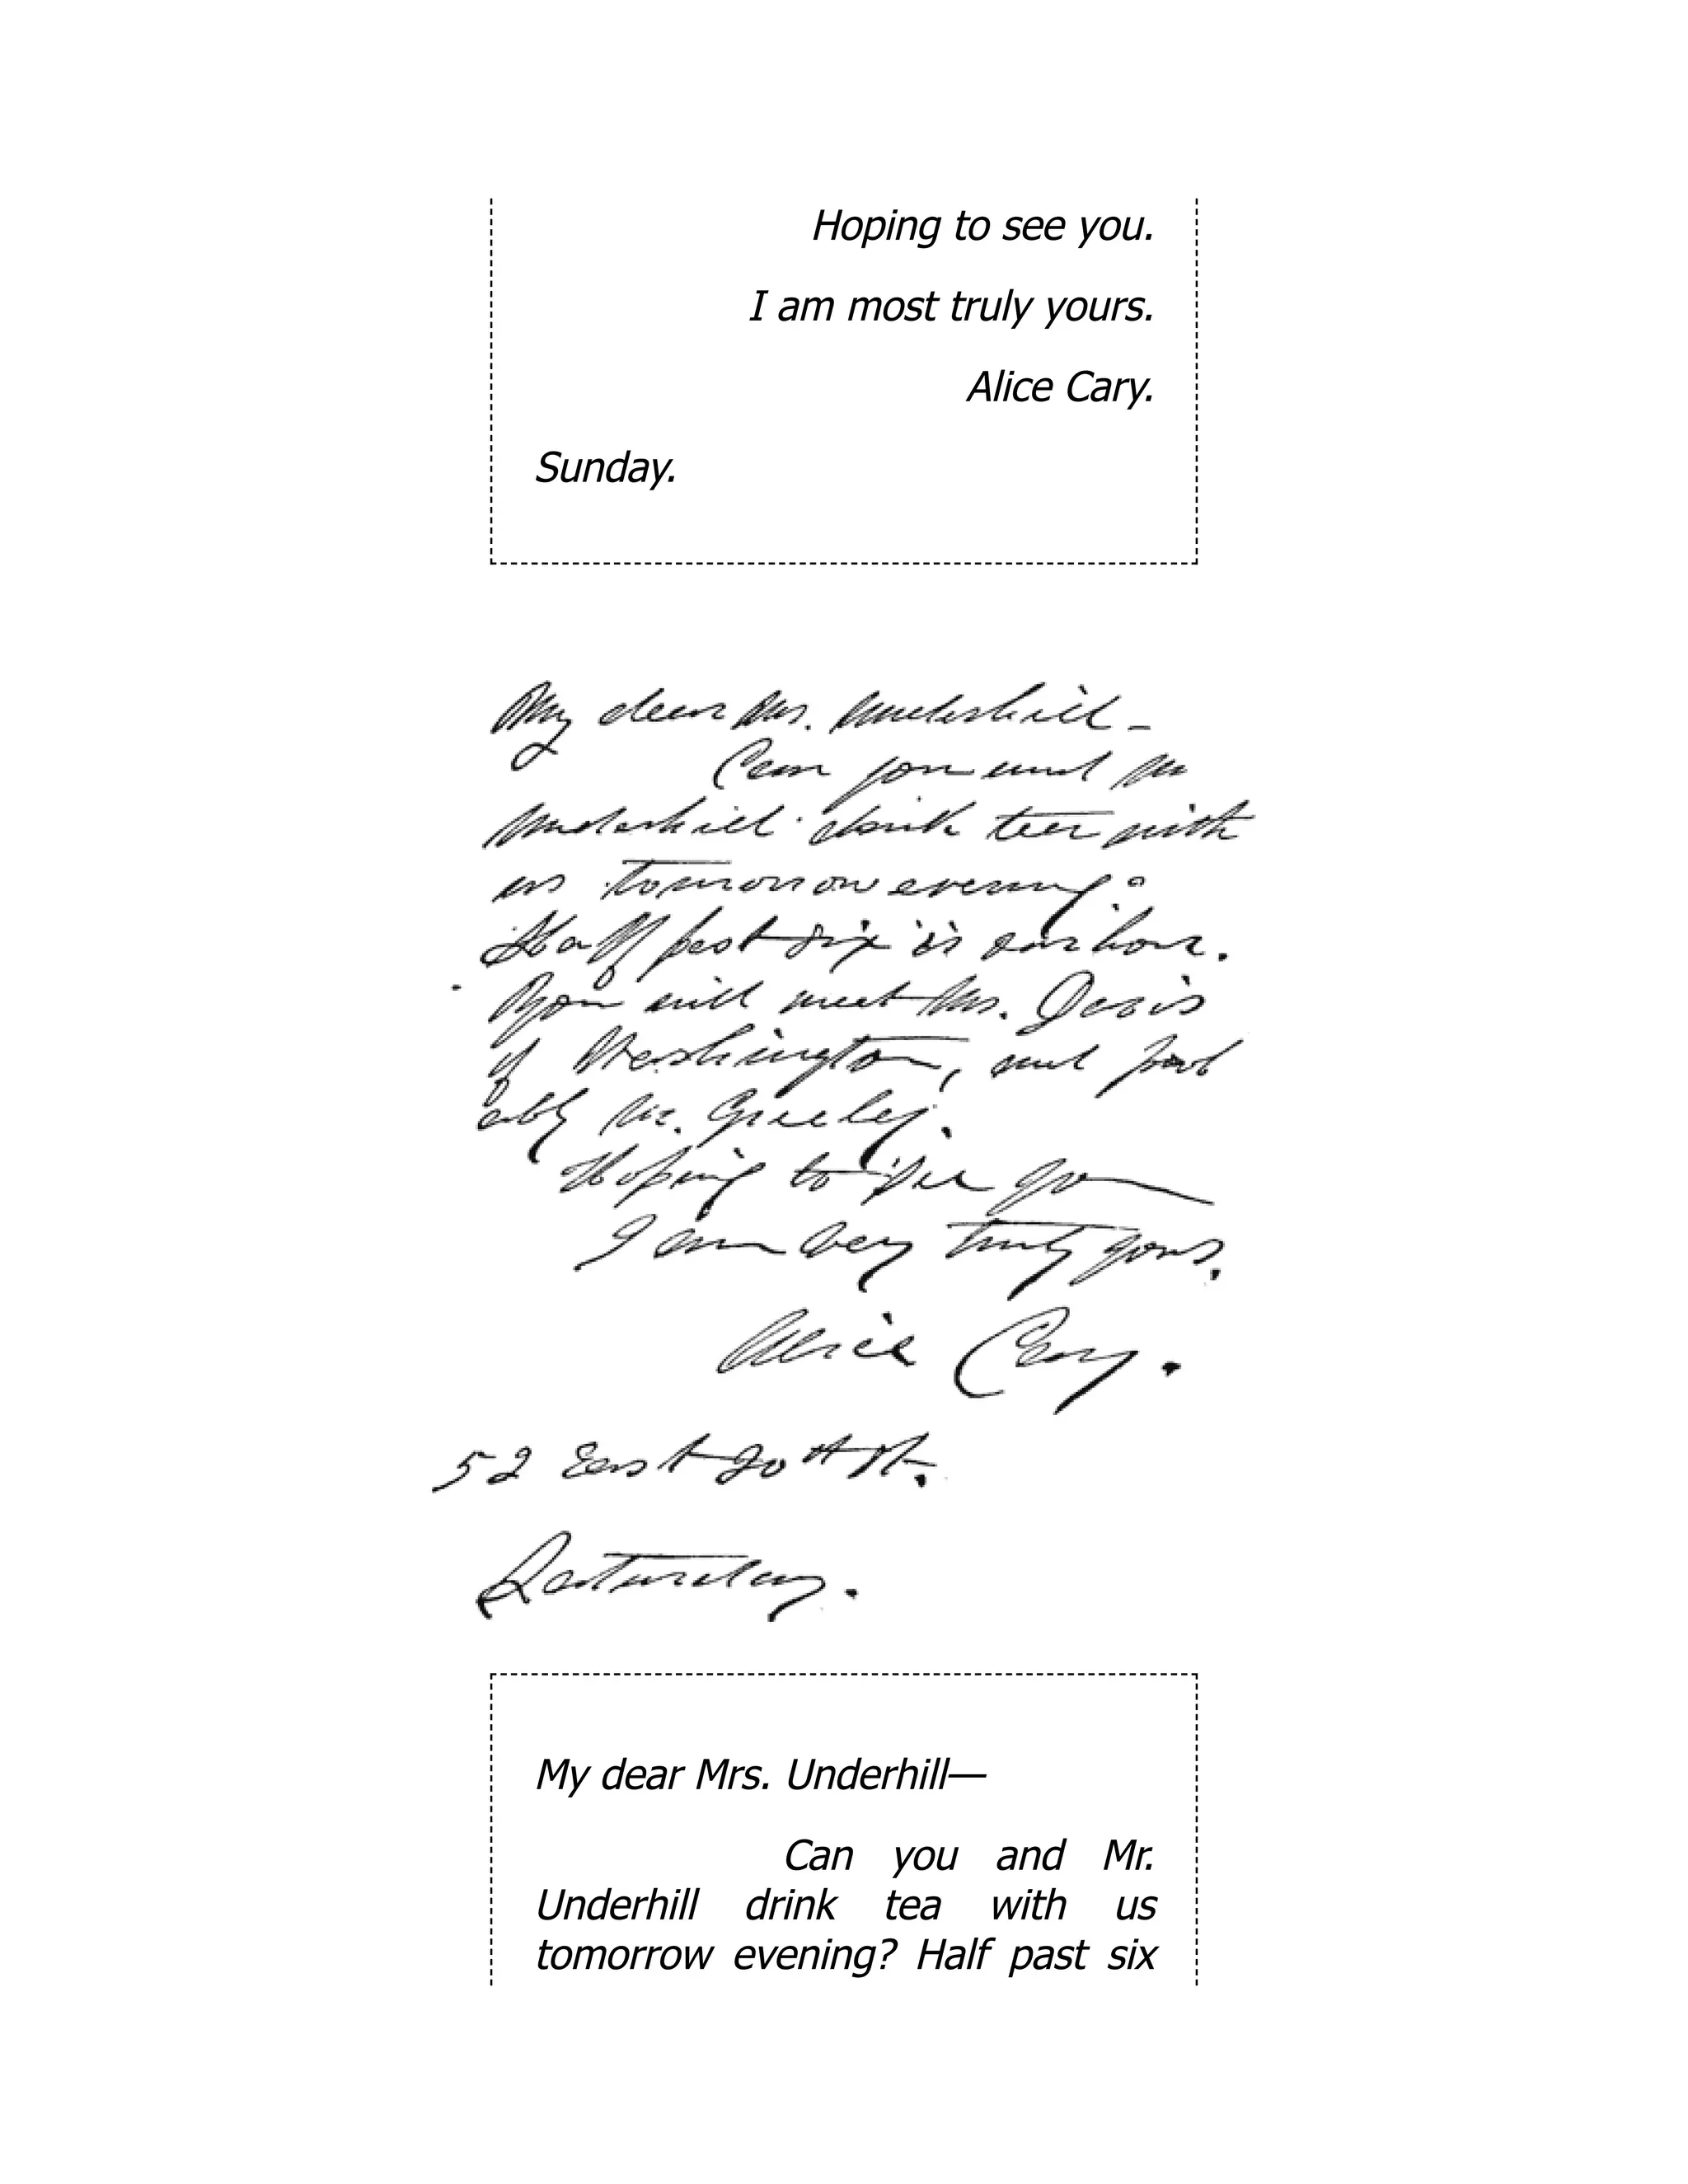 Hoping to see you.
I am most truly yours.
Alice Cary.
Sunday.
My dear Mrs. Underhill –
Can you and Mr
Underhill drink tea with
us tomorrow evening?
Half past six is our hour.
You will meet Mrs. Davis
of Washington, and prob
ably Mr. Greeley.
Hoping to see you
I am very truly yours.
Alice Cary.
52 East 20th St.
Saturday.
My dear Mrs. Underhill—
Can you and Mr.
Underhill drink tea with us
tomorrow evening? Half past six